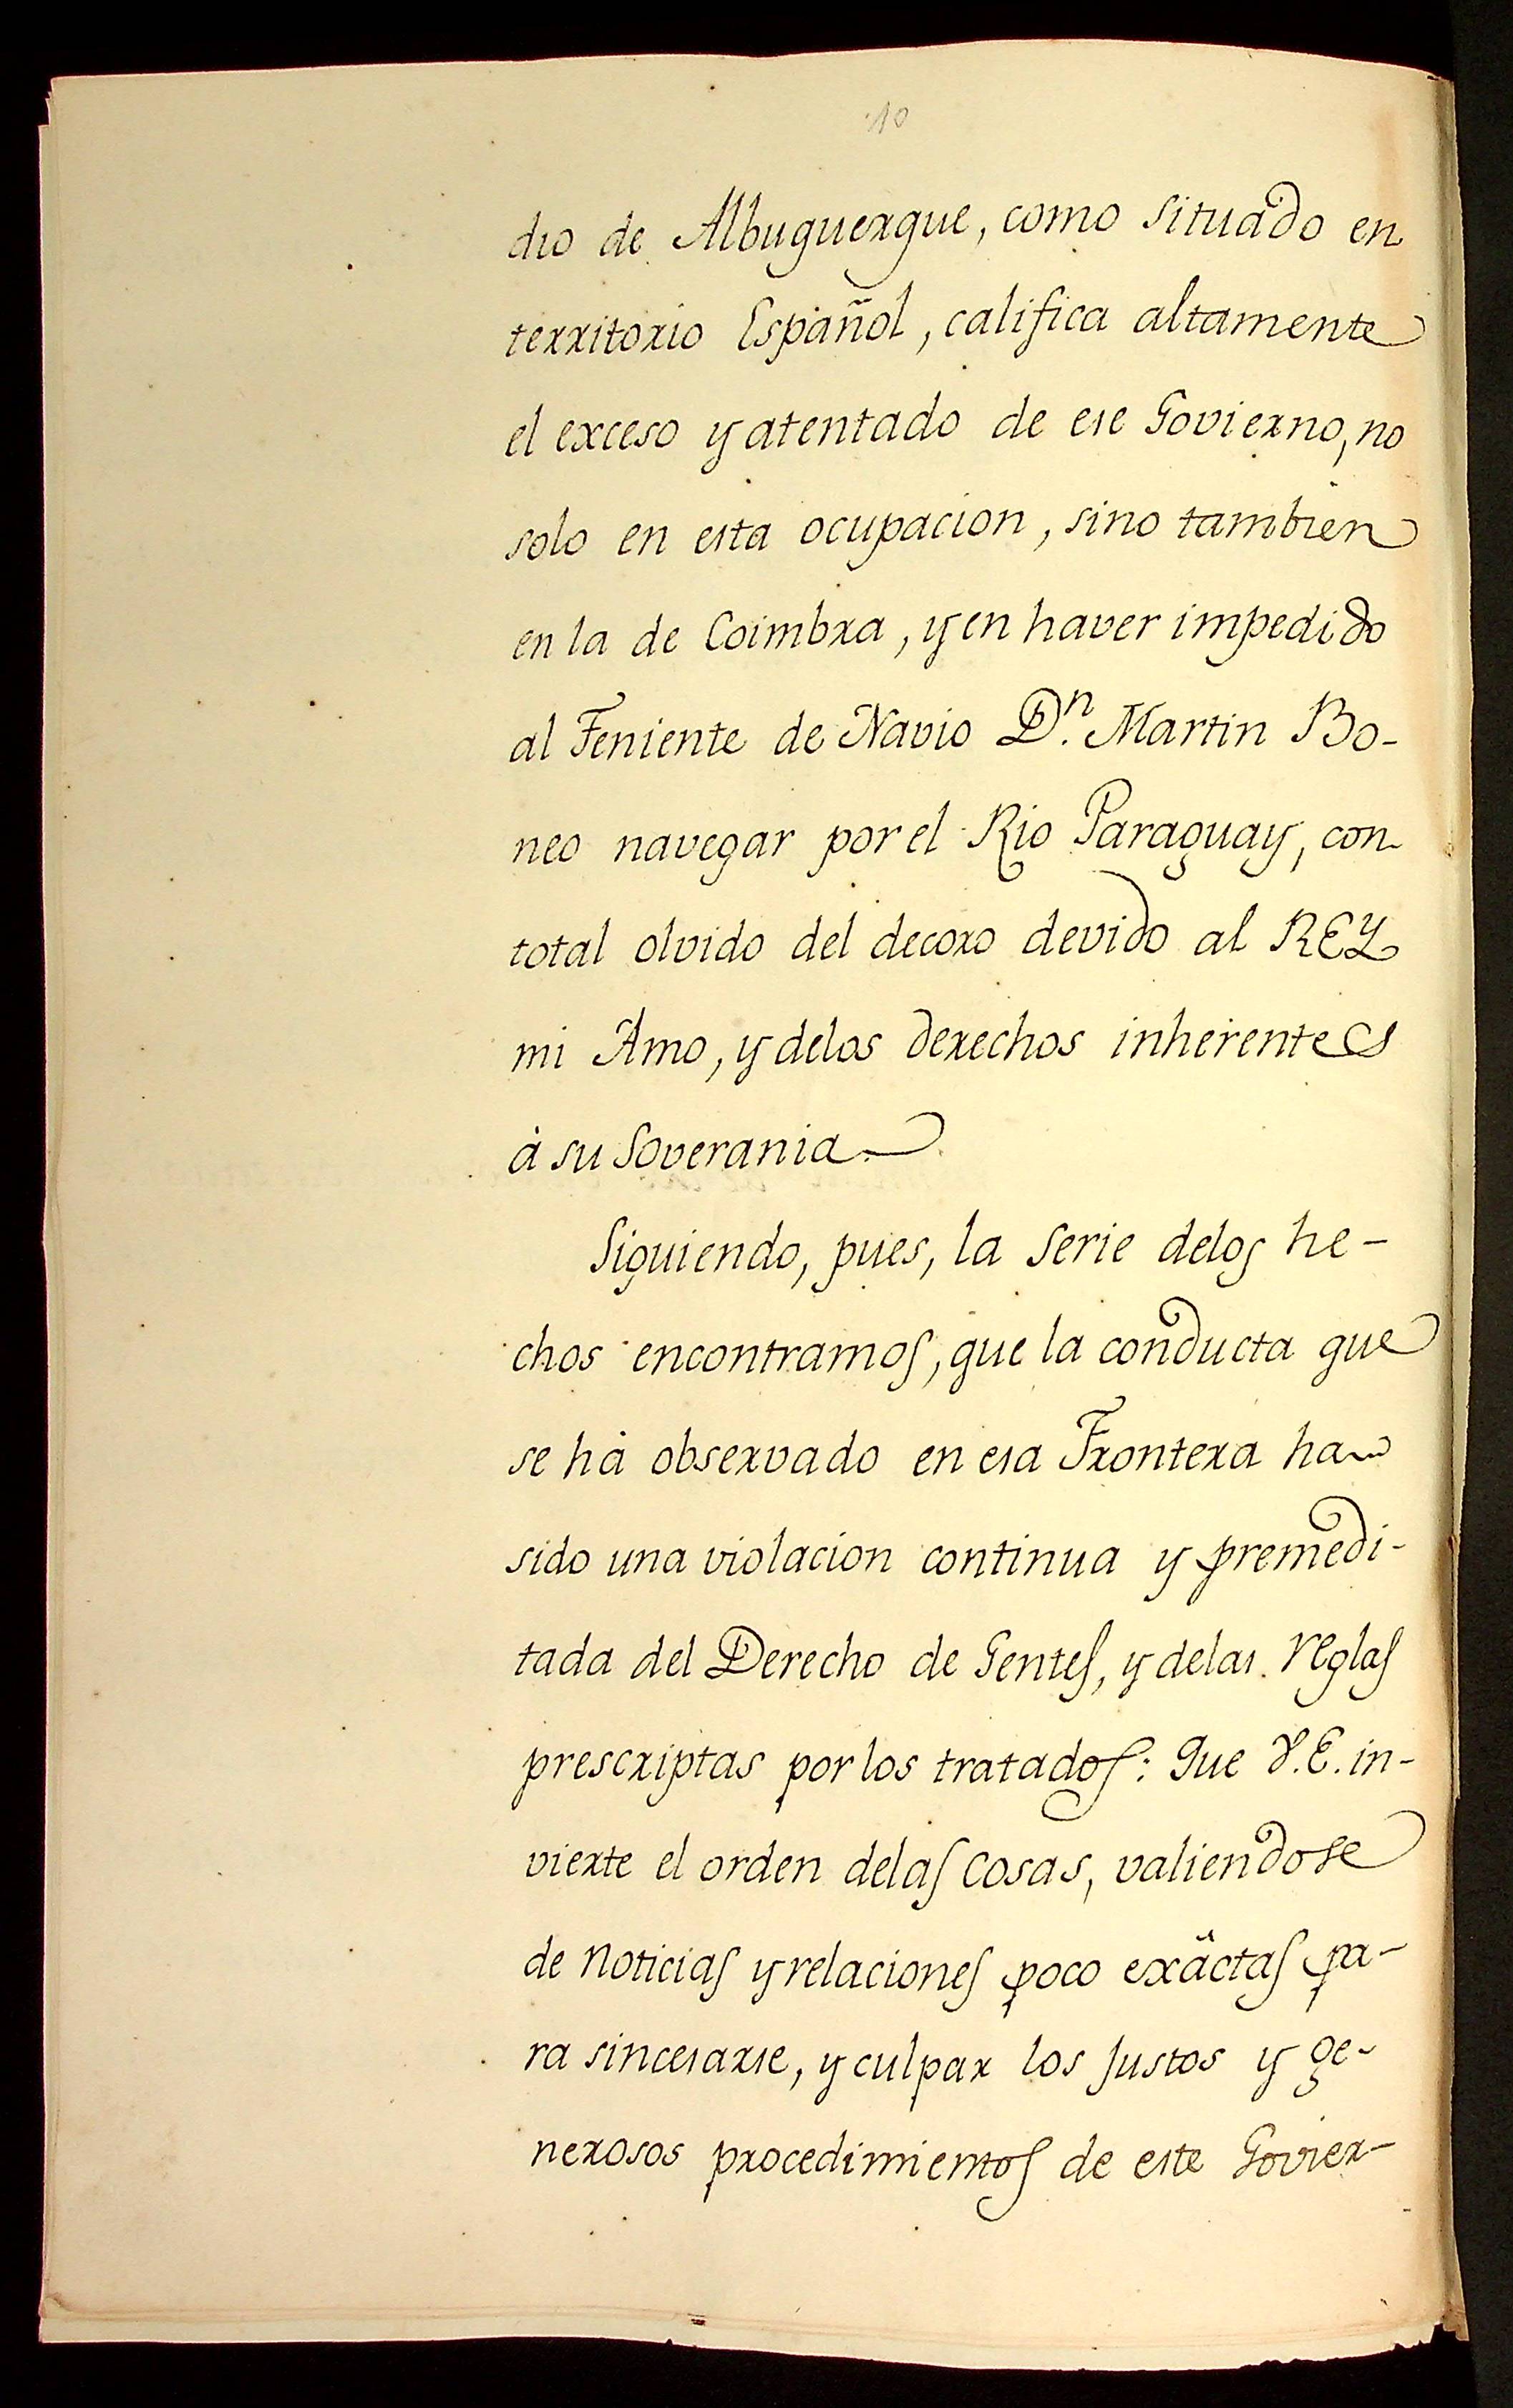 10
dio de Albuquerque, como situado en
territorio Español, califica altamente
el exceso y atentado de ese Govierno, no
solo en esta ocupacion, sino tambien
en la de Coimbra, y en haver impedido
al Teniente de Navio Dn. Martin Bo-
neo navegar por el Rio Paraguay, con
total olvido del decoro devido al REY
mi Amo, y delos derechos inherentes
à su Soverania
Siguiendo, pues, la serie delos he-
chos encontramos, que la conducta que
se hà observado en esa Frontera ha
sido una violacion continua y premedi-
tada del Derecho de Gentes, y delas reglas
prescriptas por los tratados: Que V.E. in-
vierte el orden delas cosas, valiendose
de noticias y relaciones poco exâctas pa-
ra sincerarse, y culpar los justos y ge-
nerosos procedimientos de este Govier-